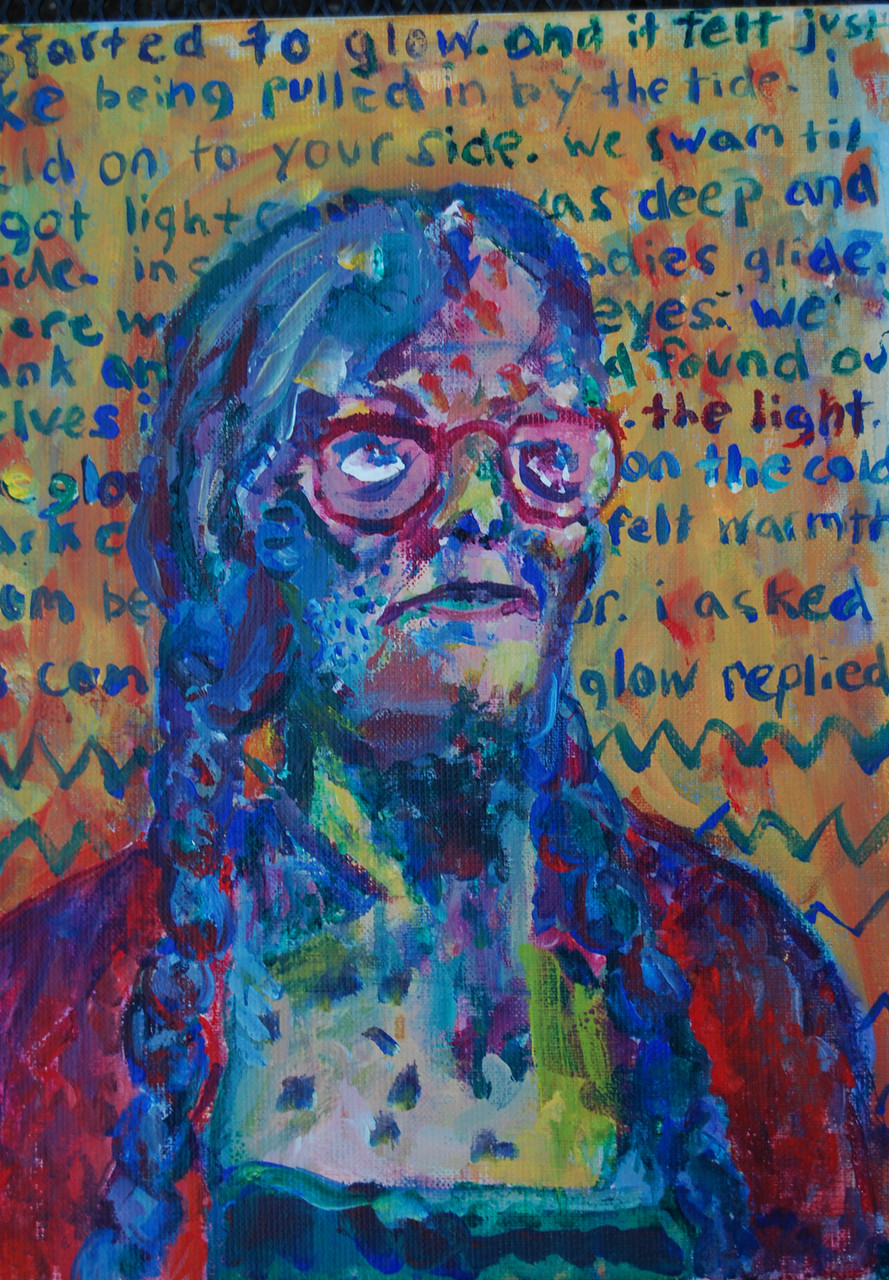 started to glow. and it felt just
ke being pulled in by the tide. i
eld on to your side. we swam til
got light as deep and
ide. in adies glide.
ere w eyes. we
ank an d found ou
elves i . the light.
e glow on the cold
ark c felt warmth
om be or. i asked
s com glow replied